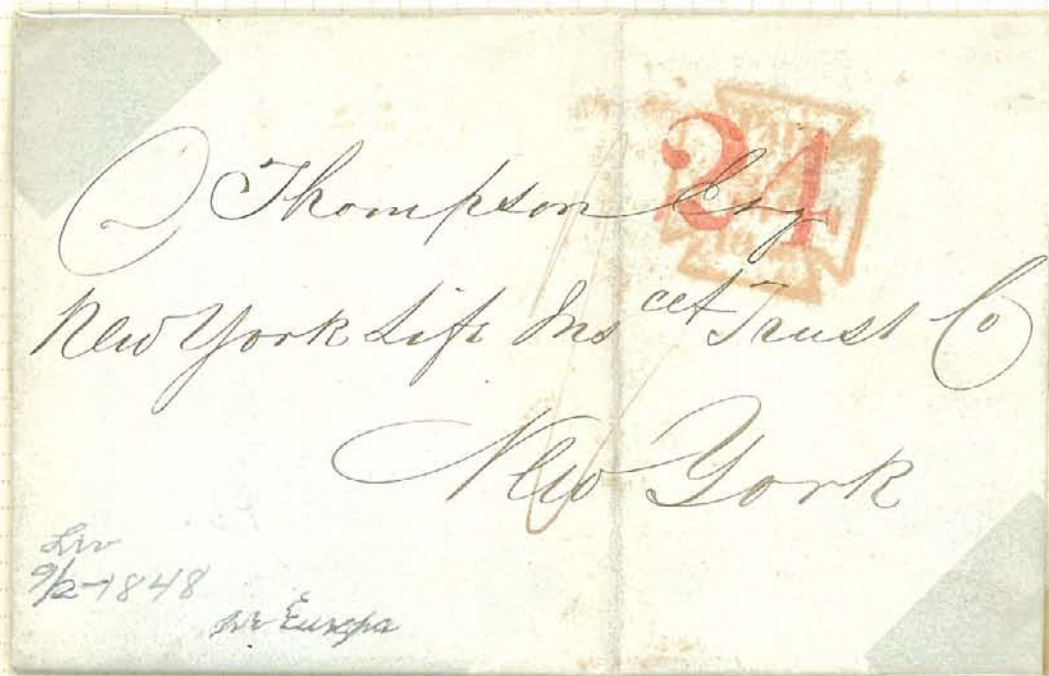 24
D Thompson Esq
New York Life Ins & Trust Co
New York
Liv
9/2-1848
per Europa